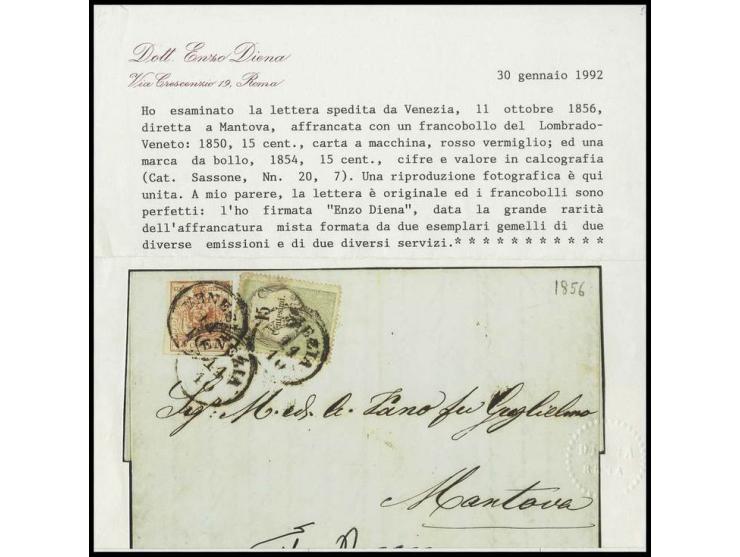 Dott. Enzo Diena
Via Crescenzio 19, Roma
30 gennaio 1992
Ho esaminato la lettera spedita da Venezia, 11 ottobre 1856,
diretta a Mantova, affrancata con un francobollo del Lombrado-
Veneto: 1850, 15 cent., carta a macchina, rosso vermiglio; ed una
marca da bollo, 1854, 15 cent., cifre e valore in calcografia
(Cat. Sassone, Nn. 20, 7). Una riproduzione fotografica è qui
unita. A mio parere, la lettera è originale ed i francobolli sono
perfetti: l'ho firmata "Enzo Diena", data la grande rarità
dell'affrancatura mista formata da due esemplari gemelli di due
diverse emissioni e di due diversi servizi.* * * * * * * * * * *
1856
15
VENEZIA
11
10
Mantova
DIENA
ROMA